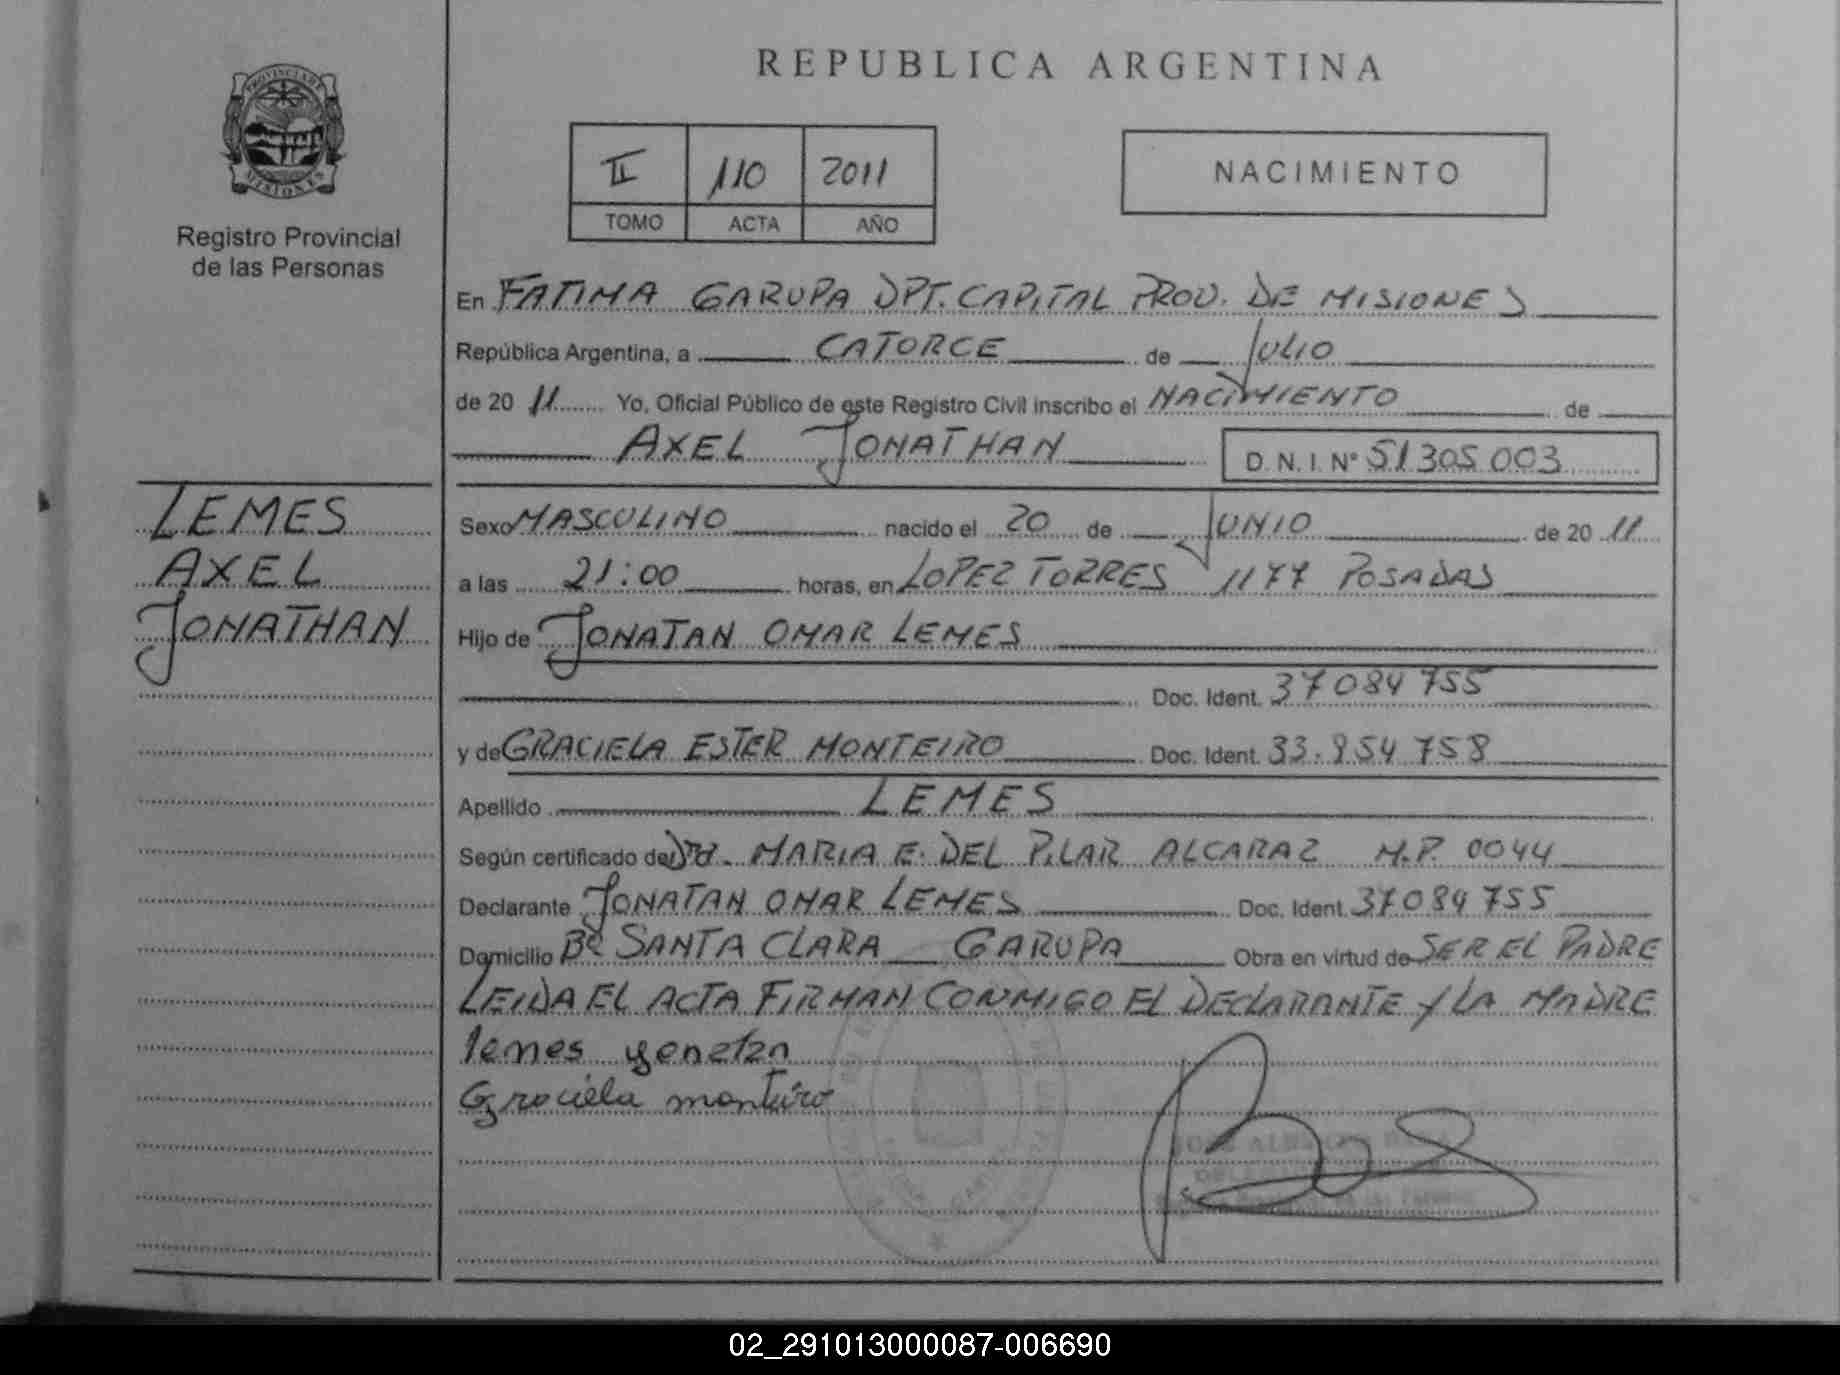 REPUBLICA ARGENTINA
PROVINCIA DE
MISIONES
Registro Provincial
de las Personas
II 110 2011
TOMO ACTA AÑO
NACIMIENTO
En FATIMA GARUPA DPT. CAPITAL PROV. DE MISIONES
República Argentina, a CATORCE de JULIO
de 20 11 Yo, Oficial Público de este Registro Civil inscribo el NACIMIENTO de
AXEL JONATHAN D.N.I. Nº 51305003
LEMES
AXEL
JONATHAN
Sexo MASCULINO nacido el 20 de JUNIO de 20 11
a las 21:00 horas, en LOPEZ TORRES 1177 POSADAS
Hijo de JONATAN OMAR LEMES
Doc. Ident. 37084755
y de GRACIELA ESTER MONTEIRO Doc. Ident. 33.954758
Apellido LEMES
Según certificado de Dra. MARIA E. DEL PILAR ALCARAZ M.P. 0044
Declarante JONATAN OMAR LEMES Doc. Ident. 37084755
Domicilio Bº SANTA CLARA GARUPA Obra en virtud de SER EL PADRE
LEIDA EL ACTA FIRMAN CONMIGO EL DECLARANTE Y LA MADRE
lemes yonatan
Graciela monteiro
02_291013000087-006690